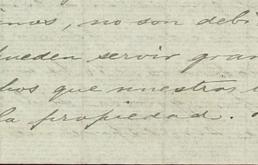 imos, no son debi
pueden servir gran
hos que nuestros
la propiedad.